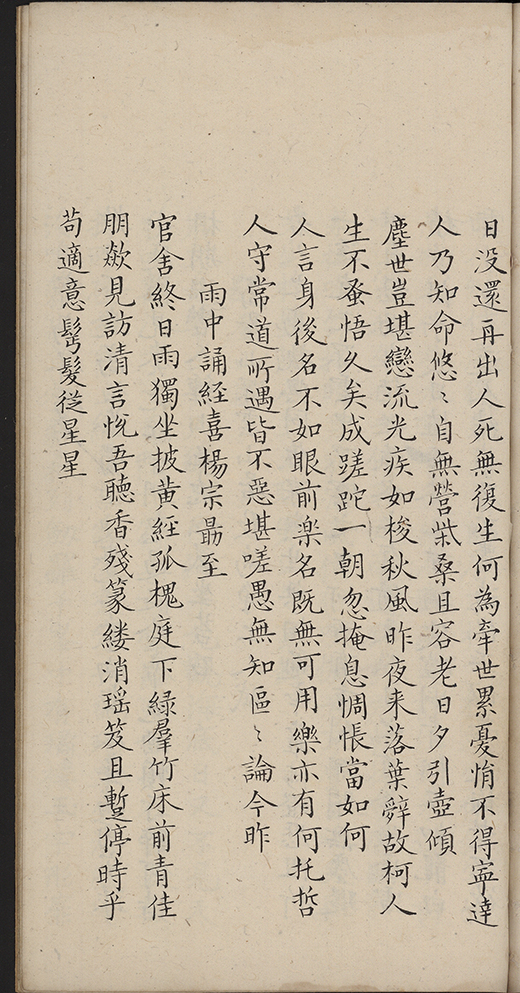 日没還再出人死無復生何為牽世累憂悁不得寧達
人乃知命悠〻自無營柴桑且容老日夕引壺傾
塵世豈堪戀流光疾如梭秋風昨夜来落葉辭故柯人
生不蚤悟久矣成蹉跎一朝忽掩息惆悵當如何
人言身後名不如眼前楽名既無可用樂亦有何托哲
人守常道所遇皆不惡堪嗟愚無知區〻論今昨
雨中誦経喜楊宗勗至
官舍終日雨獨坐披黄経孤槐庭下緑羣竹床前青佳
朋欻見訪清言悅吾聽香殘篆縷消瑶笈且蹔停時乎
苟適意髩髮從星星